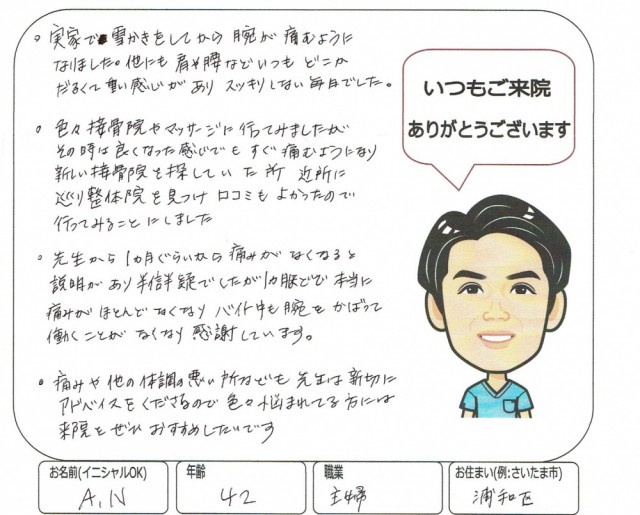 。実家で雪かきをしてから 腕が 痛むように
なりました。他にも 肩や腰などいつも どこか
だるくて重い感じがあり スッキリしない毎日でした。
。色々接骨院やマッサージに行ってみましたが
その時は良くなった感じでも すぐ痛むようになり
新しい接骨院を探していた所 近所に
巡り整体院を見つけ 口コミもよかったので
行ってみることにしました
。先生から1カ月ぐらいから痛みがなくなると
説明があり半信半疑でしたが1カ月ほどで本当に
痛みがほとんどなくなり バイト中も腕をかばって
働くことがなくなり感謝しています。
。痛みや他の体調の悪い所なども 先生は親切に
アドバイスをくださるので色々悩まれてる方には
来院をぜひおすすめしたいです
いつもご来院
ありがとうございます
お名前(イニシャルOK)
A,N
年齢
42
職業
主婦
お住まい(例:さいたま市)
浦和区